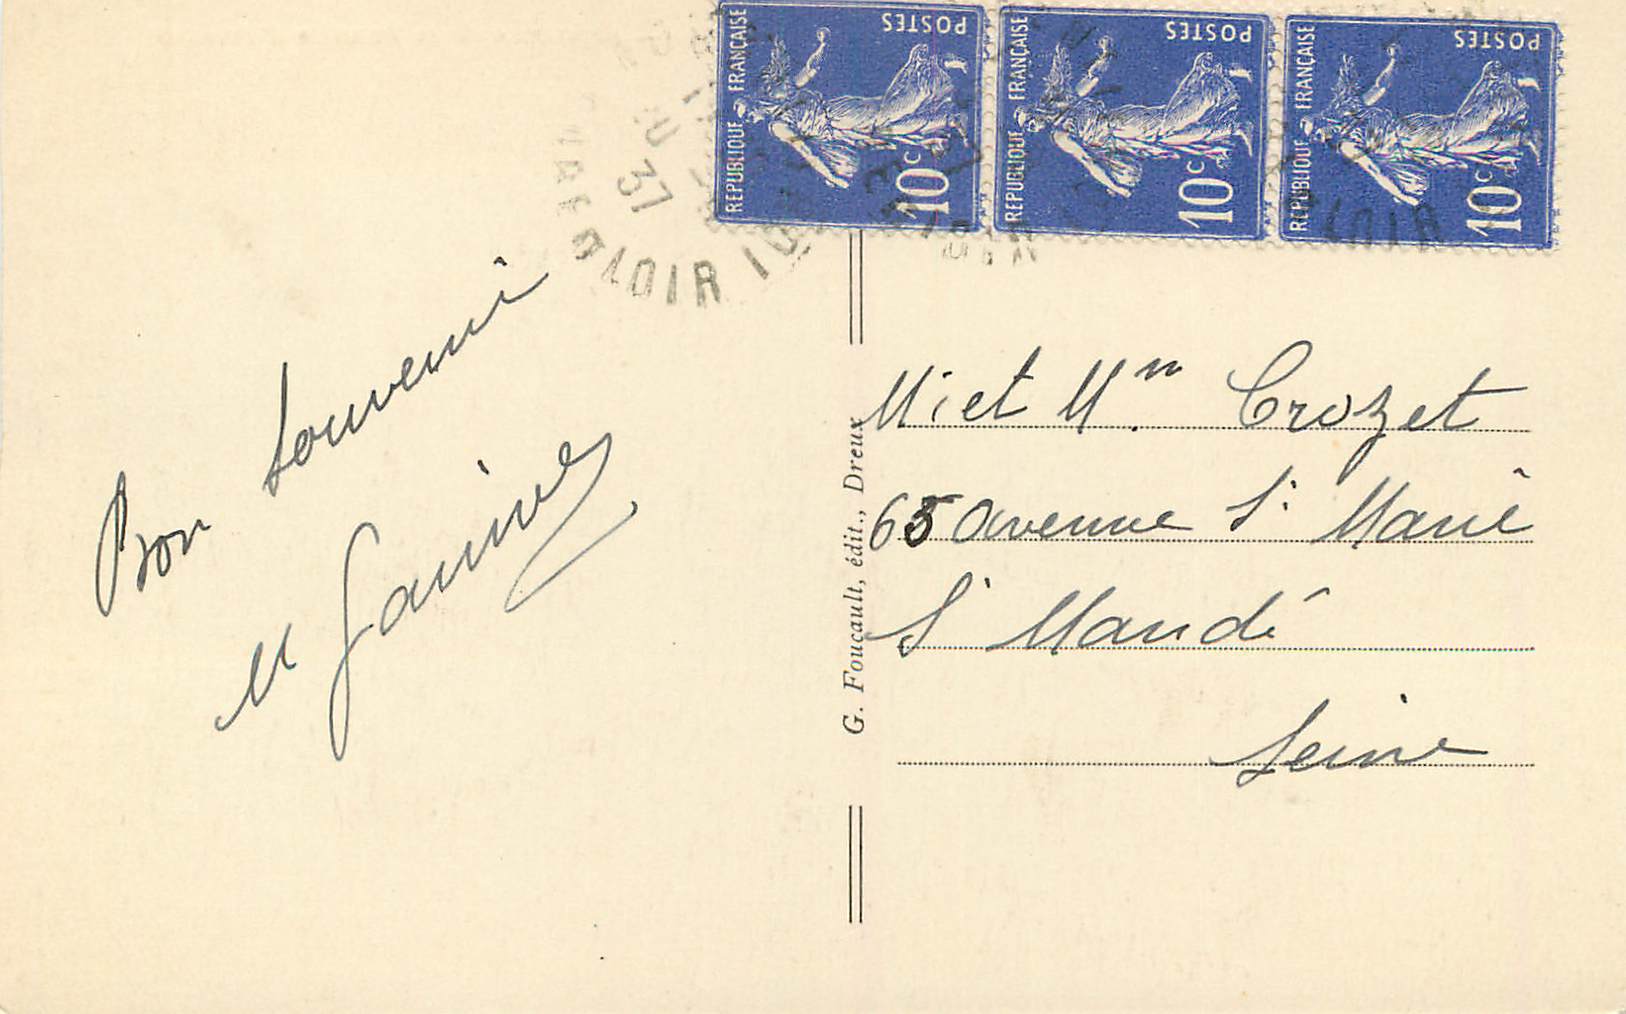 REPUBLIQUE FRANÇAISE POSTES 10c
REPUBLIQUE FRANÇAISE POSTES 10c
REPUBLIQUE FRANÇAISE POSTES 10c
37
LOIR
Bon Souvenir
M
G. Foucault, édit., Dreux
M. et Mm Crozet
65 avenue St Marie
St Mandé
Seine